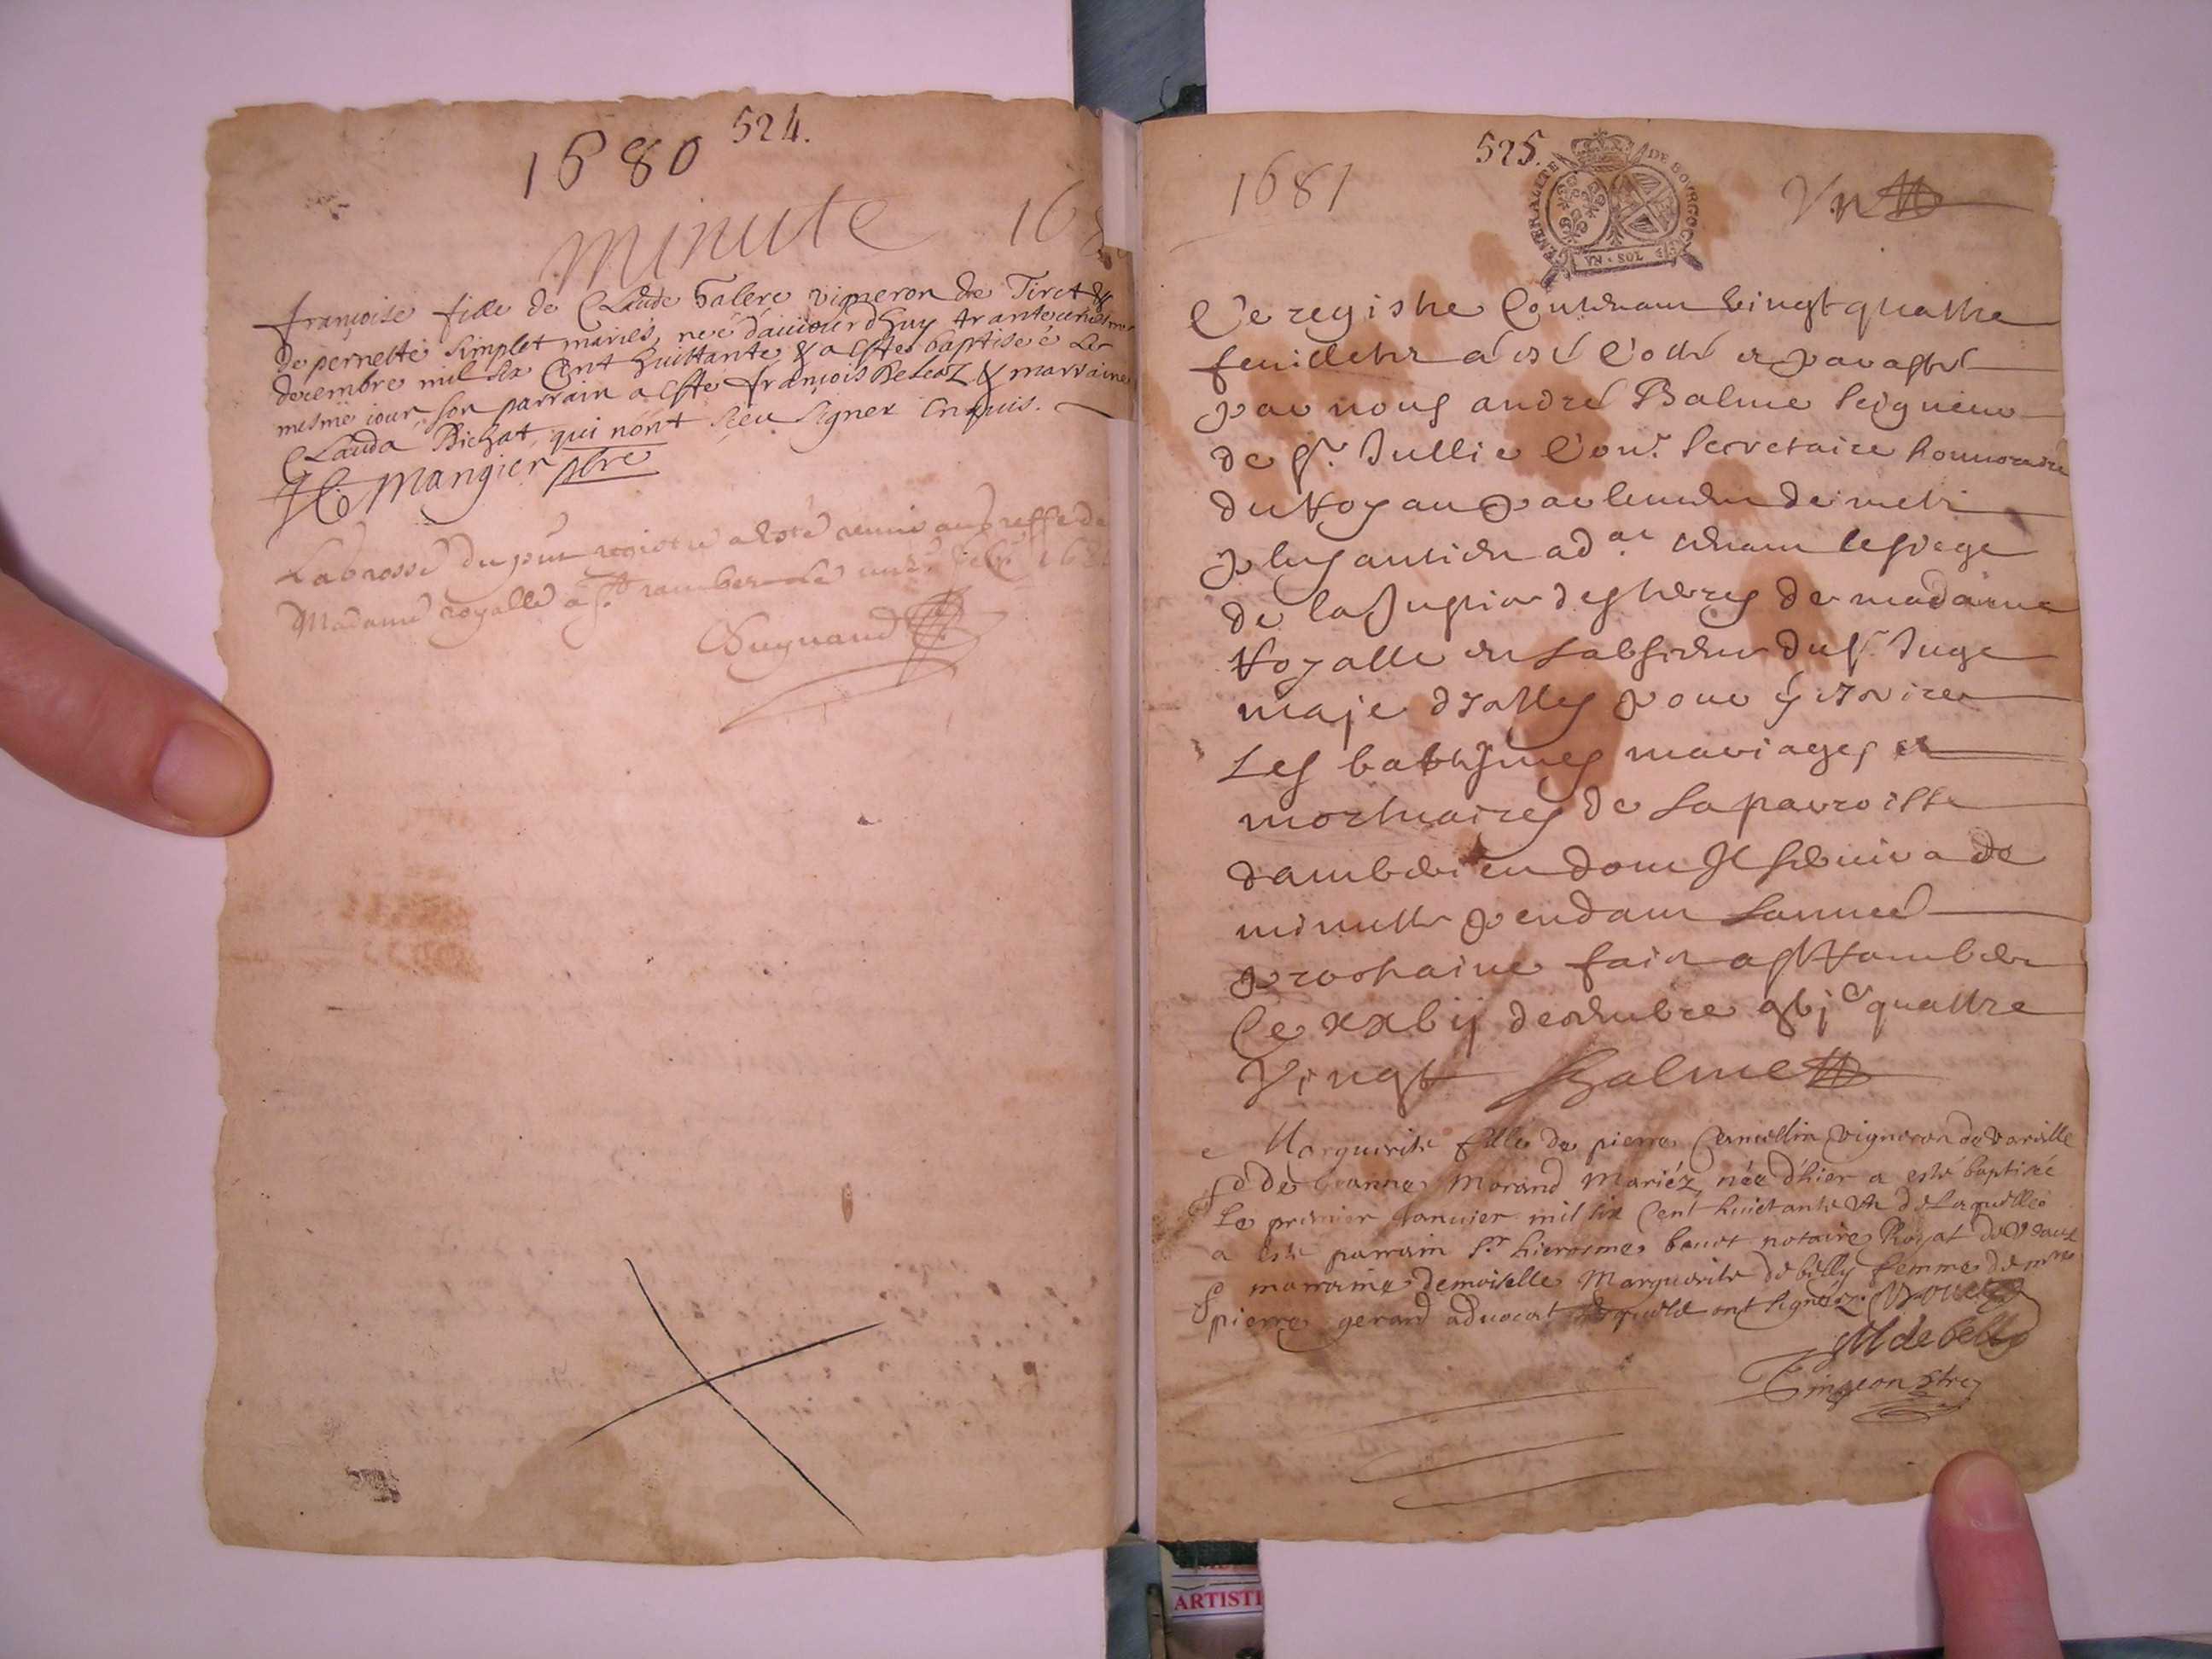 1680 524.
minute 168
françoise fille de Claude Galere vigneron de Tiret &
de pernette Simplet mariés, neé d'auiourdhuy trante unies me
decembre mil six Cent huittante & a Estes baptiseé Le
mesme iour, son parrain a Esté françois Beleaz & marraine
Clauda Bichat, qui n'ont sceu signer Enquis.
Mangier ptre
La Grosse du pnt registre a esté remis au greffe de
Madame royalle a St rambert le
Dugnand
1681 525. Vn
GENERALITE DE BOVRGOG
VN · SOL
Ce registre Contenant Vingt quattre
feuillets a esté Cotté et paraffé
par nous andré Balme Seigneur
de St. Jullie Con.r Secretaire honnoraire
du Roy au Parlement de metz
plus antien ad.at tenant le siege
de la Justice des terres de madame
Royalle en Labsence du Sr Juge
maje dicelles pour y escrire
Les baptesmes mariages et
mortuaires de La parroisse
damberieu dont Il servira de
minutte pendant Lanneé
prochaine fait a St Rambert
Ce xxbij decembre gbjc quattre
Vingt Balme
Marguerite fille de pierre vigneron de vareille
& de Jeanne Morand Mariéz née d'hier a esté baptisée
Le premier Januier mil six Cent huictante vn de Laquelle
a esté parrain Sr hierosme notaire Royal
& marraine demoiselle Marguerite de billy femme de mre
pierre gerard aduocat ont signéz.
M de billy
Tingeon ptre
ARTISTI